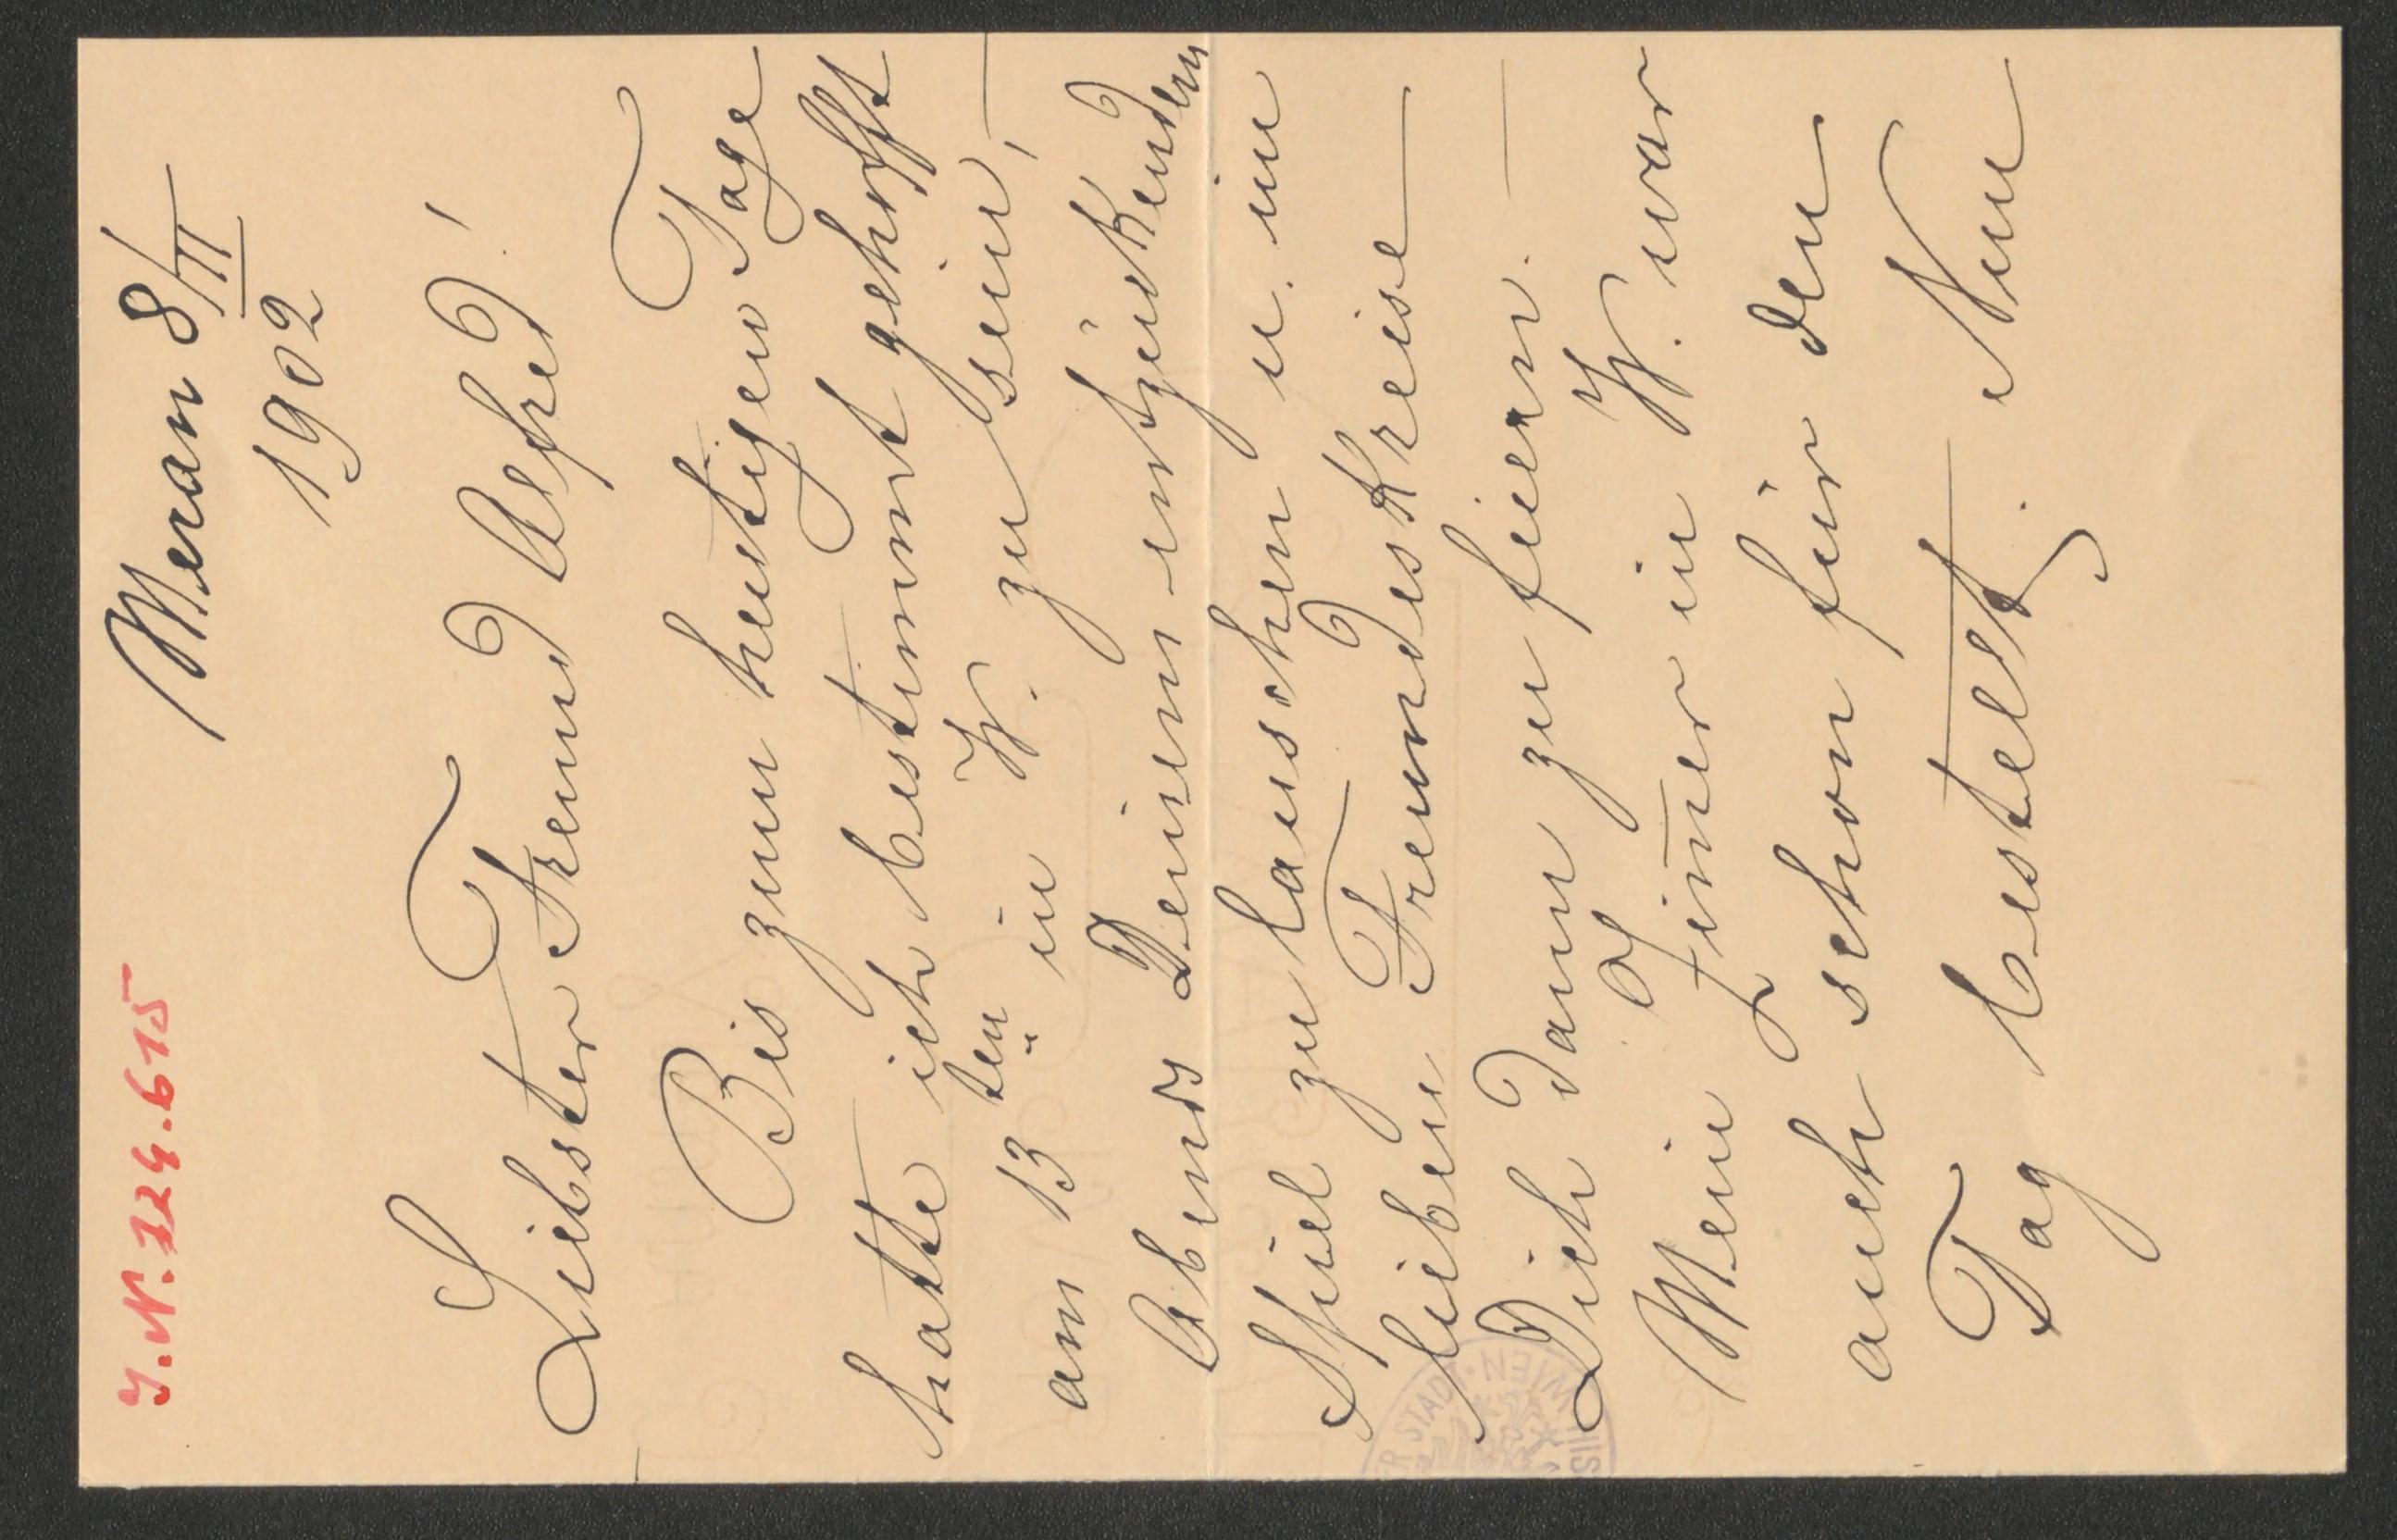 J.N. 124.615
Meran 8/II
1902
Liebster Freund Alfred!
Bis zum heutigen Tage
hatte ich bestimmt gehofft
am 13ten in W. zu sein, –
Abends Deinem entzückenden
Spiel zu lauschen u. im
lieben Freundeskreise –
Dich dann zu feiern. –
Mein Zimer in W. war
auch schon für den
Tag bestellt. Nun
STADT WIEN